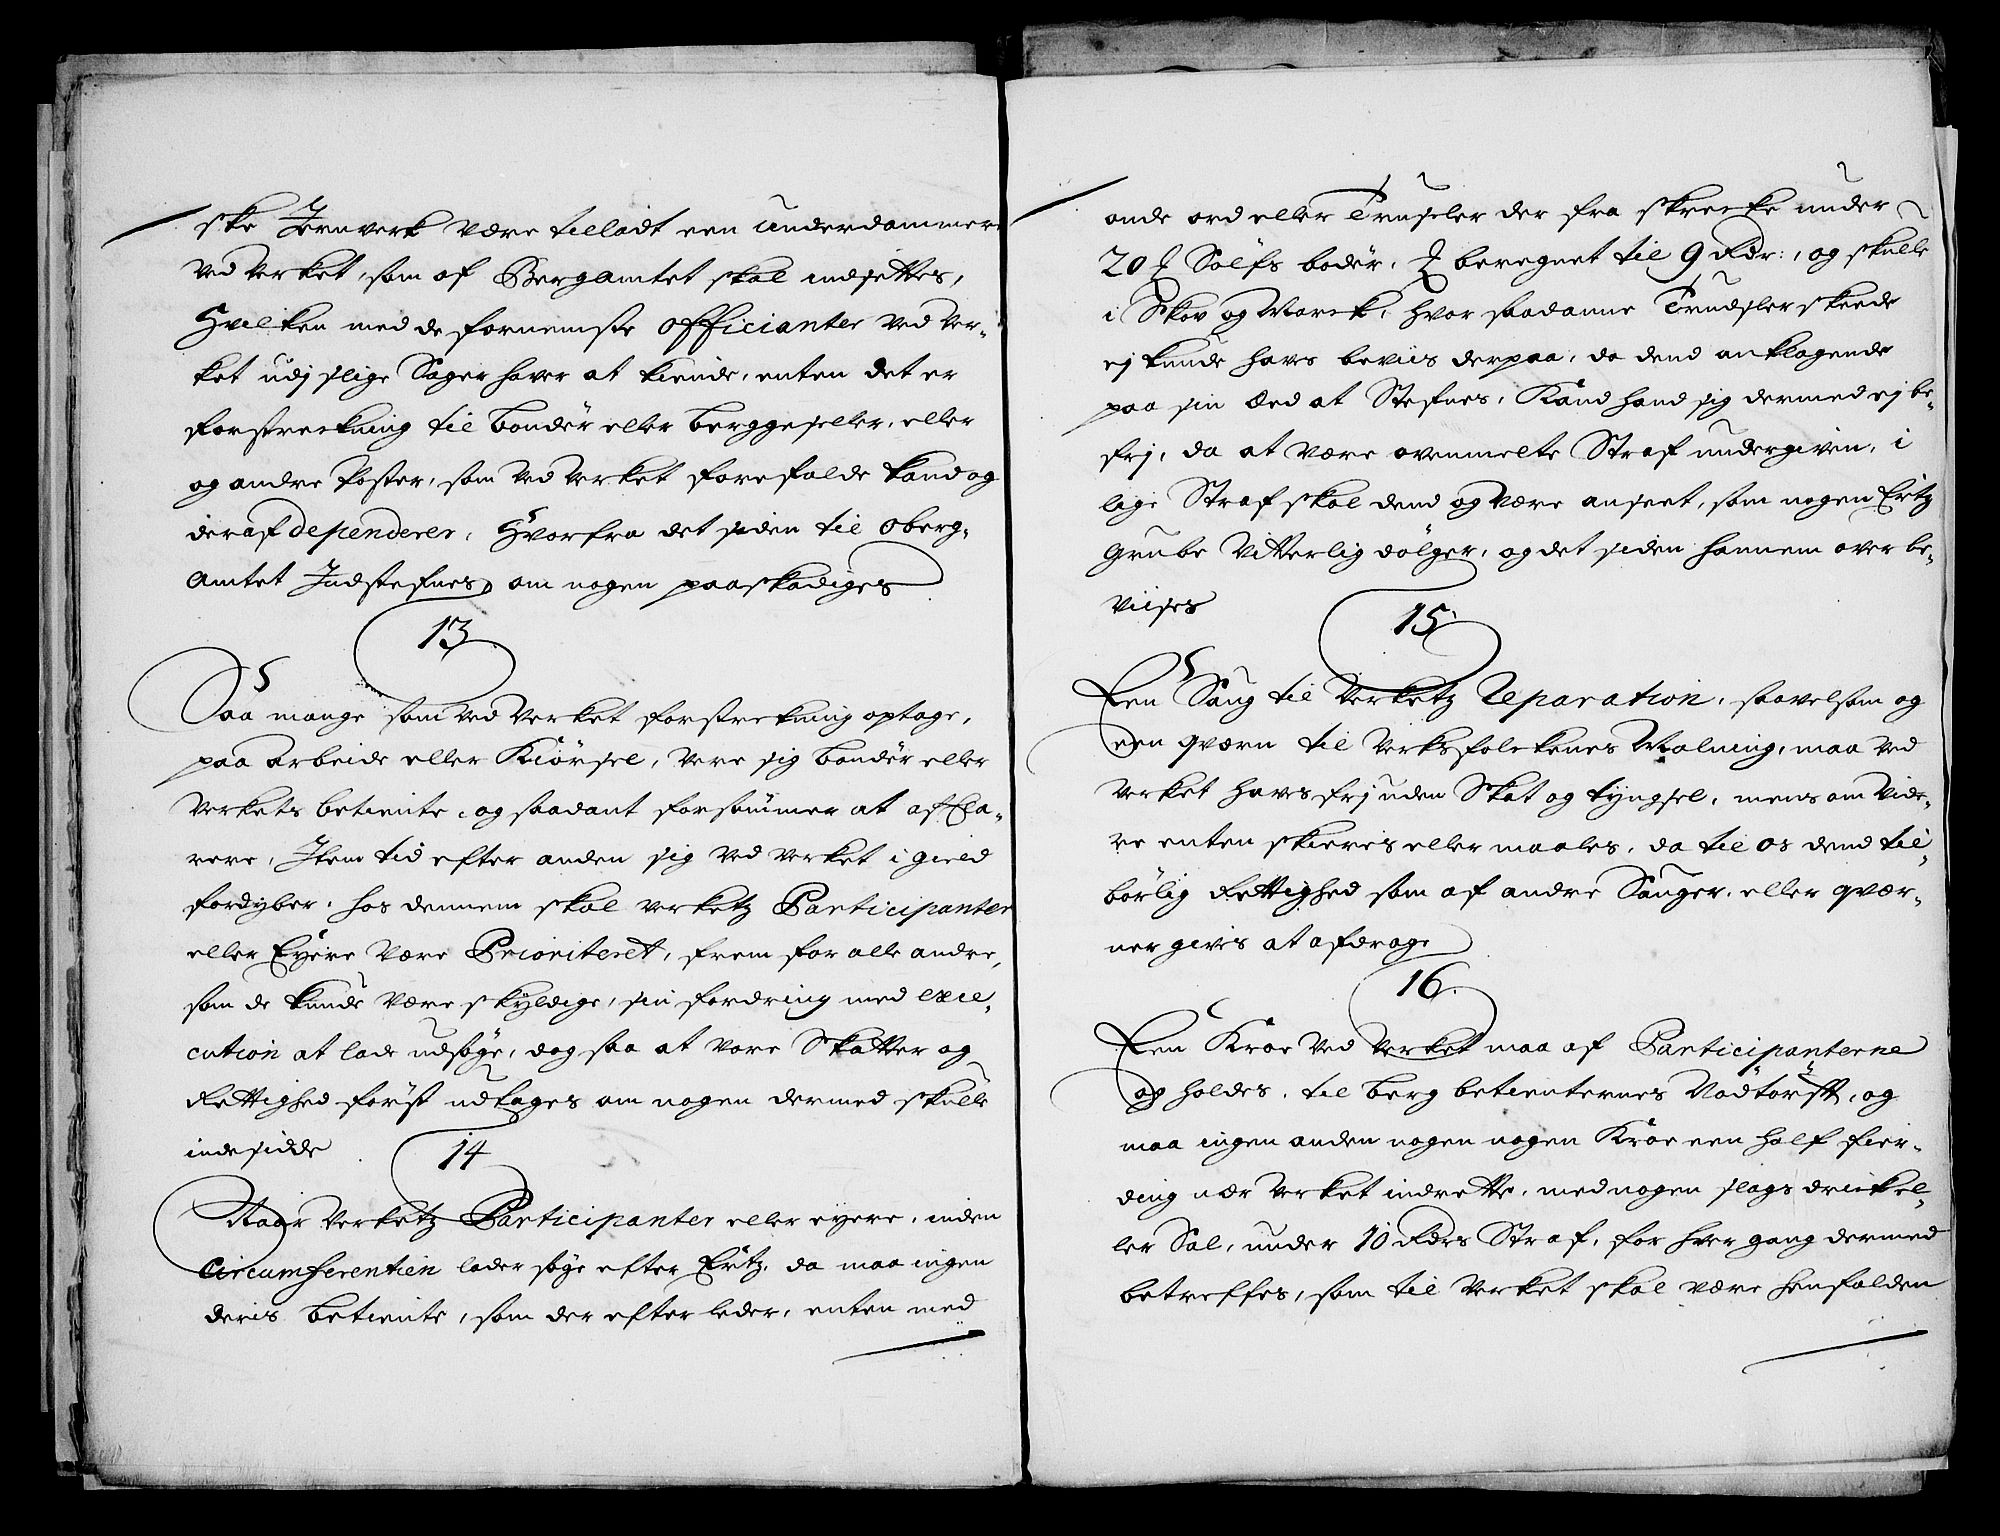 ske Jernverk være tilladt een Underdommere
ved Verket, som af Bergamtet skal indsettes,
Hvilken med de fornemste officianter ved Ver-
ket udj slige Sager haver at kiende, enten det er
forstreckning til bønder eller berggeseller, eller
og andre Poster, som ved Verket forefalde kand og
deraf dependerer, Hvorfra det siden til Oberg-
Amtet Indstefnes, om nogen paaskadiges
13
Saa mange som ved Verket forstrekning optage,
paa arbeide eller Kiörsel, være sig bönder eller
Verkets betiente, og saadant forsömmer at afcla-
rere, Item tid efter anden sig ved Verket i gield
fordyber, hos dennem skal Verketz Participanter
eller Eyere være Prioriteret, frem for alle andre,
som de kunde være skyldige, sin fordring med exie-
cution at lade udsöge, dog saa at Vore Skatter og
Rettighed först udtages om nogen dermed skulle
inde sidde
14
Naar Verketz Participanter eller eyere, inden
Circumferentien lader söge efter Ertz, da maa ingen
deris betiente, som der efter leder, enten med
onde ord eller Truseler der fra skrecke under
20 ℔ Sölfs böder, ℔ beregnet til 9 Rdr:, og skulle
i Skov og Marck, hvor saadanne Trudsler skeede
ej kunde haves beviis derpaa, da dend anklagende
paa sin Eed at Stefnes, Kand hand sig dermed ej be-
frj, da at være ovenmelte Straf undergiven, i
lige Straf skal dend og være anseet, som nogen Ertz
Grube vitterlig dölger, og det siden hannem over be-
viises
15
Een Saug til Verketz Reparation, saavelsom og
een qværn til Verksfolckenes Malning, maa ved
Verket haves frj uden Skat og tyngsel, mens om vide-
re enten skieres eller maales, da til os dend til-
börlig Rettighed som af andre Sauger, eller qvær-
ner gives at afdrage
16.
Een Kroe ved Verket maa af Participanterne
og holdes, til berg betienternes Nödtörfft, og
maa ingen anden nogen nogen Kroe een half fier-
ding nær Verket indrette, med nogen slags drickel-
ler Sal, under 10 Rdrs Straf, for hver gang dermed
betreffes, som til Verket skal være henfalden